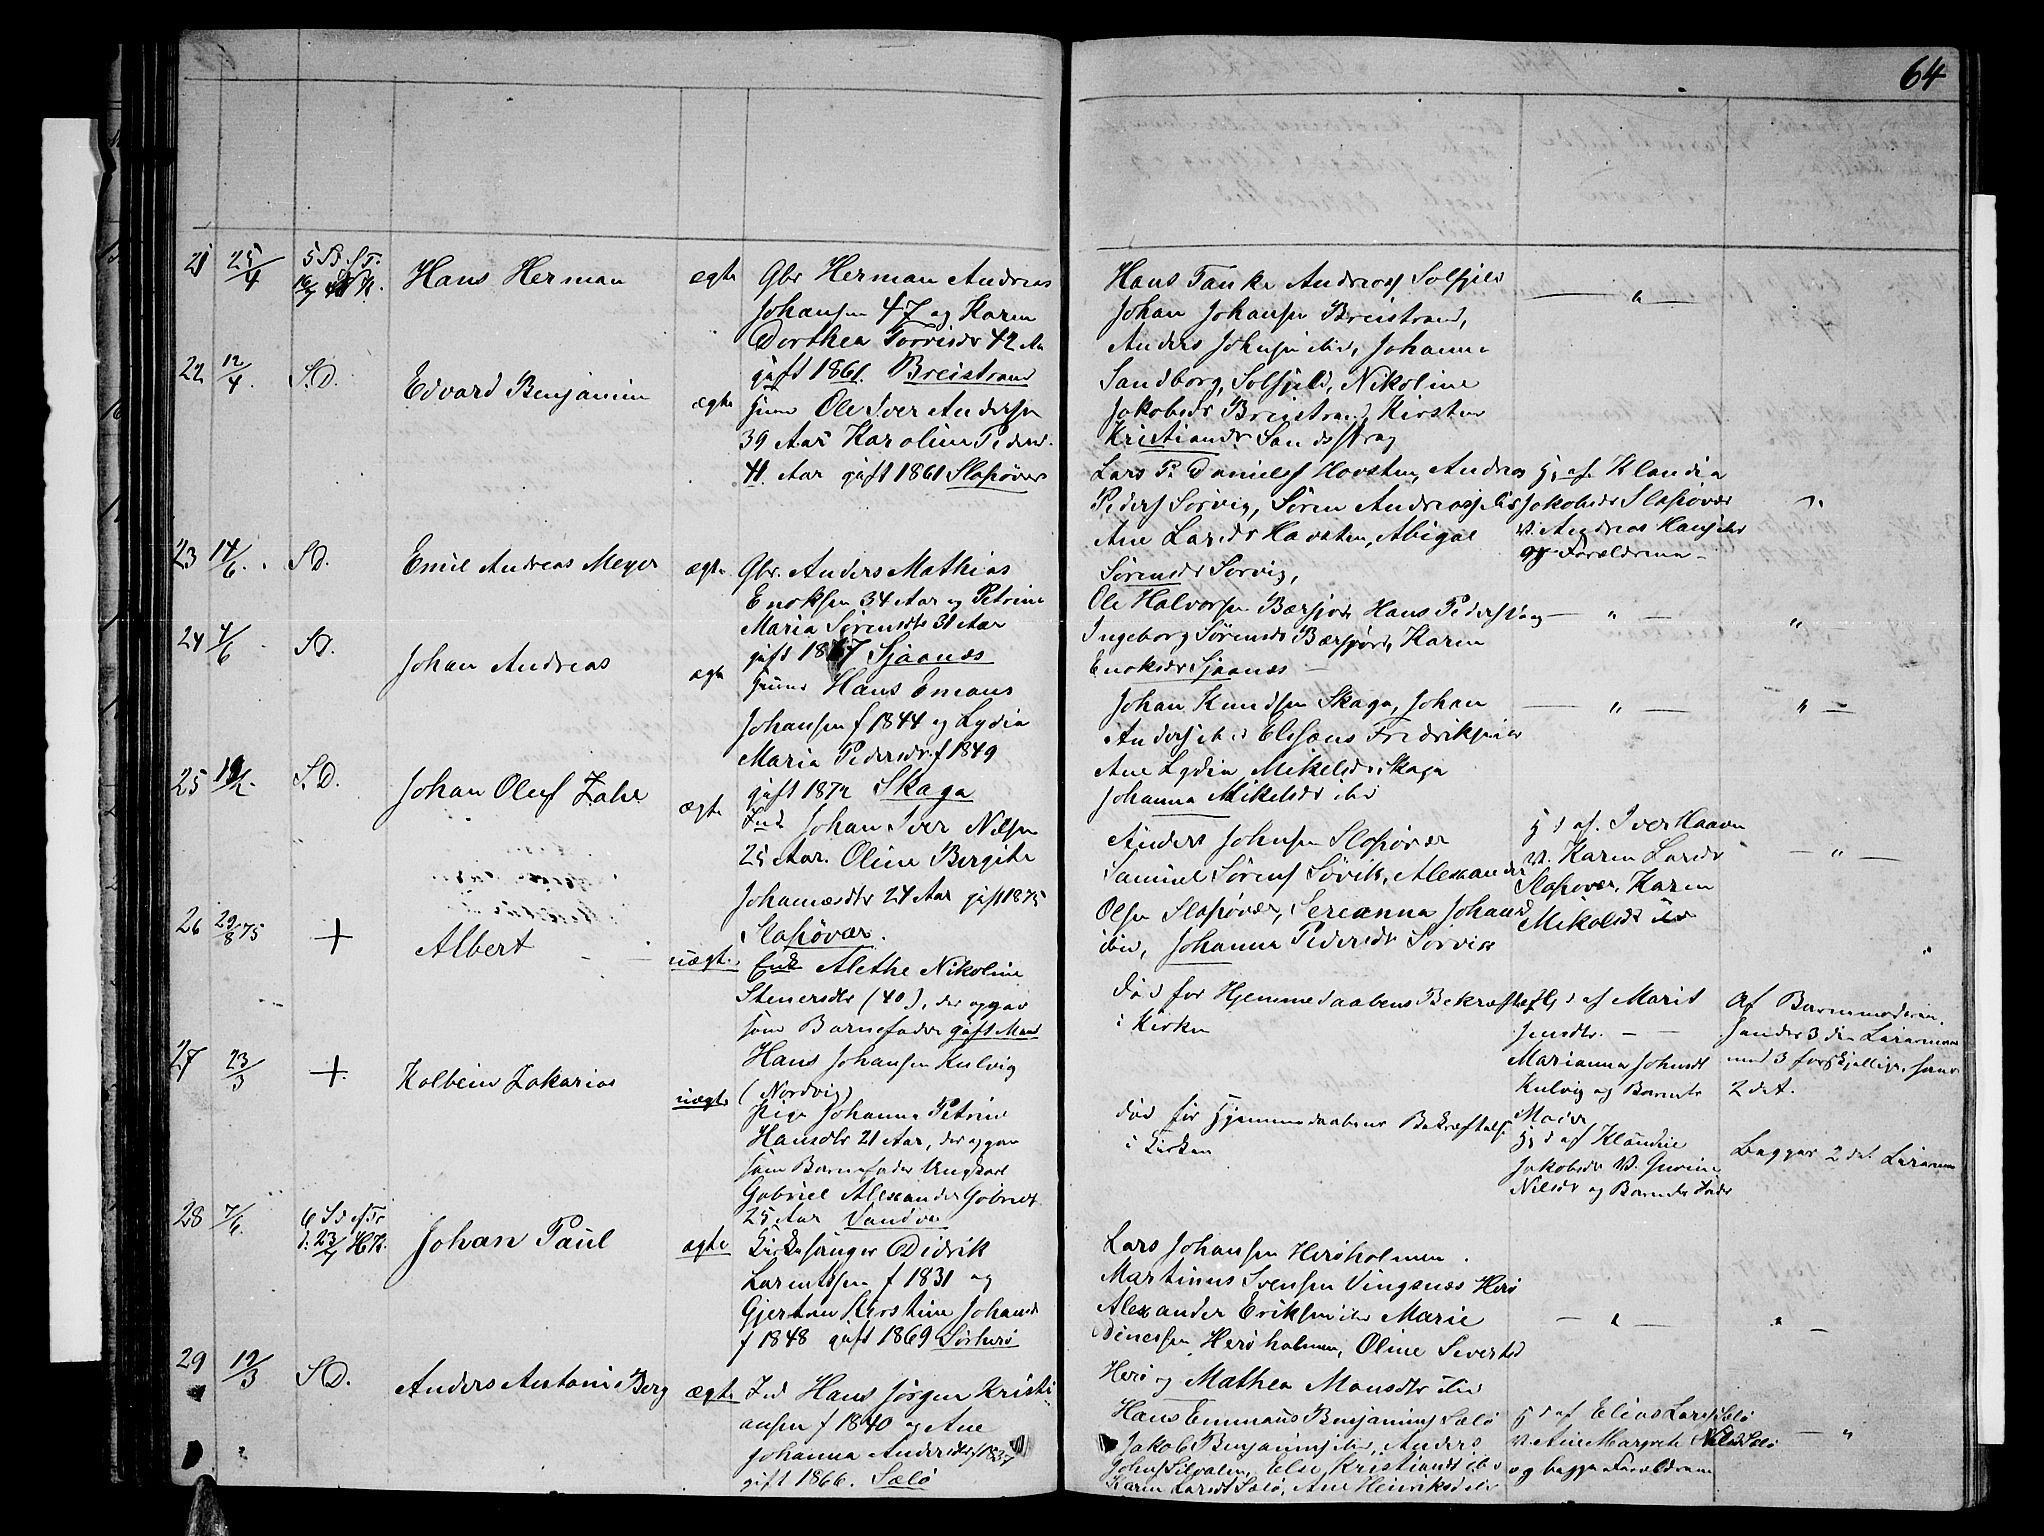 64
21 25/4 5 S. f. Tr. 16/7 H.K. Hans Herman ægte Gbr Herman Andreas
Johansen 47 og Karen
Dorthea Torrisdr 42 Aar
gift 1861. Breistrand
Hans Tanke Andreass Solfjeld
Johan Johansen Breistrand,
Anders Johnsen ibid, Johanna
Sandborg, Solfjeld, Nikoline
Jakobsdr Breistrand, Kirsten
Kristiansdr Sandstrag
— " —
22 12/4. S.D. Edvard Benjamin ægte
Ole Iver Andersen
39 Aar Karoline Pedersd.
41 Aar gift 1861 Slapøvær
Lars P. Daniels Havsten, Andreas
Peders Sørvig, Søren Andreass ibid
Ane Larsdr Havsten, Abigael
Sørensdr Sørvig,
Hj. af. Klaudia
Jakobsdr Slapøvær
V. Andreas Hans ibid
og Forældrene –
23 14/6. S.D. Emil Andreas Meyer ægte. Gbr. Anders Mathias
Enoksen 34 Aar og Petrine
Maria Sørensdtr 31 Aar
gift 1867 Sjaanæs
Ole Halvorsen Bærfjord Hans Peders Vaag
Ingeborg Sørensdr Bærfjord, Karen
Enoksdr Sjaanæs –
— " — "
24 4/6. S.D. Johan Andreas ægte
Hans Emaus
Johansen f 1844 og Lydia
Maria Pedersdr f 1849
gift 1872 Skaga
Johan Knudsen Skaga, Johan
Anders ibid Elsæus Fredriksen ibid
Ane Lydia Mikelsd. Skaga
Johanna Mikelsdr ibid
— " — " —
25 S.D. Johan Oluf Zahl ægte
Ind Johan Iver Nilsen
25 Aar. Oline Bergite
Johannesdtr 24 Aar gift 1875
Slapøvær.
Anders Johnsen Slapøvær
Samuel Sørens Sørvik, Alexander
Olsen Slapøvær, Sereanna Johansd
ibid, Johanna Pedersdr Sørvik
Hj d af. Iver Haavn
V. Karen Larsdr
Slapøvær, Karen
Mikelsdr ibd
— " —
26 29/8 75 + Albert uægte.
Enk Alethe Nikoline
Stenersdtr (40), der opgav
som Barnefader gift Mand
Hans Johansen Kulvig
(Nordvig)
Død før Hjemmedaabens Bekræftelse
i Kirken
Hj d af Marit
Jensdtr. —
Marianna Johnsdr
Kulvig og Barnets
Moder
Af Barnemoderen
Hendes 3die Leiermaal
med 3 forskjellige, hans
2det.
27 23/3 + Kolbein Zakarias uægte
Pige Johanna Petrine
Hansdtr 21 Aar, der opgav
som Barnefader Ungkarl
Gabriel Alexander Gabriels
25 Aar Vandve
Død før Hjemmedaabens Bekræftelse
i Kirken
Hj d af Klaudie
Jakobsdr V.
Nilsdr og Barnets Fader
Begges 2det Leiermaal
28 7/6. 6 S. ef. Tr. d. 23/7 H.K. Johan Paul ægte Kirkesanger Didrik
Larentssen f 1831 og
Gjertine Kirstine Johansdr
f 1848 gift 1869 Sørherø
Lars Johansen Herøholmen.
Martinus Svensen Vingsnæs Herø
Alexander Eriksen ibd Marie
Dinessen, Herøholmen, Oline Sivertsd
Herø og Mathea Mansdtr ibd
— " — " —
29 12/3 S.D. Anders Antoni Berg ægte Ind Hans Jørgen Kristi-
ansen f 1840 og Ane
Johanna Andersdtr f 1837
gift 1866. Sælø
Hans Emmaus Benjamins Sælø
Jakob Benjamins ibd, Anders
Johns Silvalen, Else Kristiansdr ibd
Karen Larsdr Sælø, Ane Henriksd ibd
Hj d af Elias Lars Sælø
V. Ane Margrete Nilsd Sælø
og begge Forældrene
— "